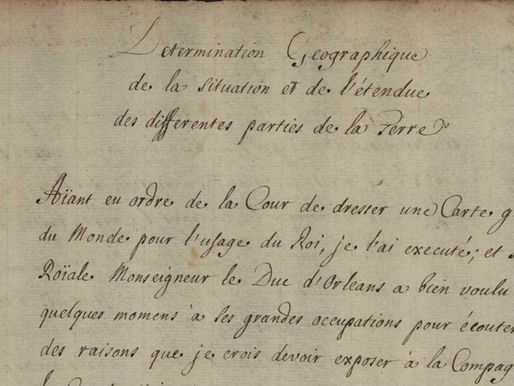 Determination Geographique
de la Situation et de l'étendue
des differentes parties de la Terre
Aïant eu ordre de la Cour de dresser une Carte g
du Monde pour l'usage du Roi, je l'ai executé; et
Roïale Monseigneur le Duc d'Orleans a bien voulu
quelques momens à les grandes occupations pour écouter
des raisons que je crois devoir exposer à la Compag